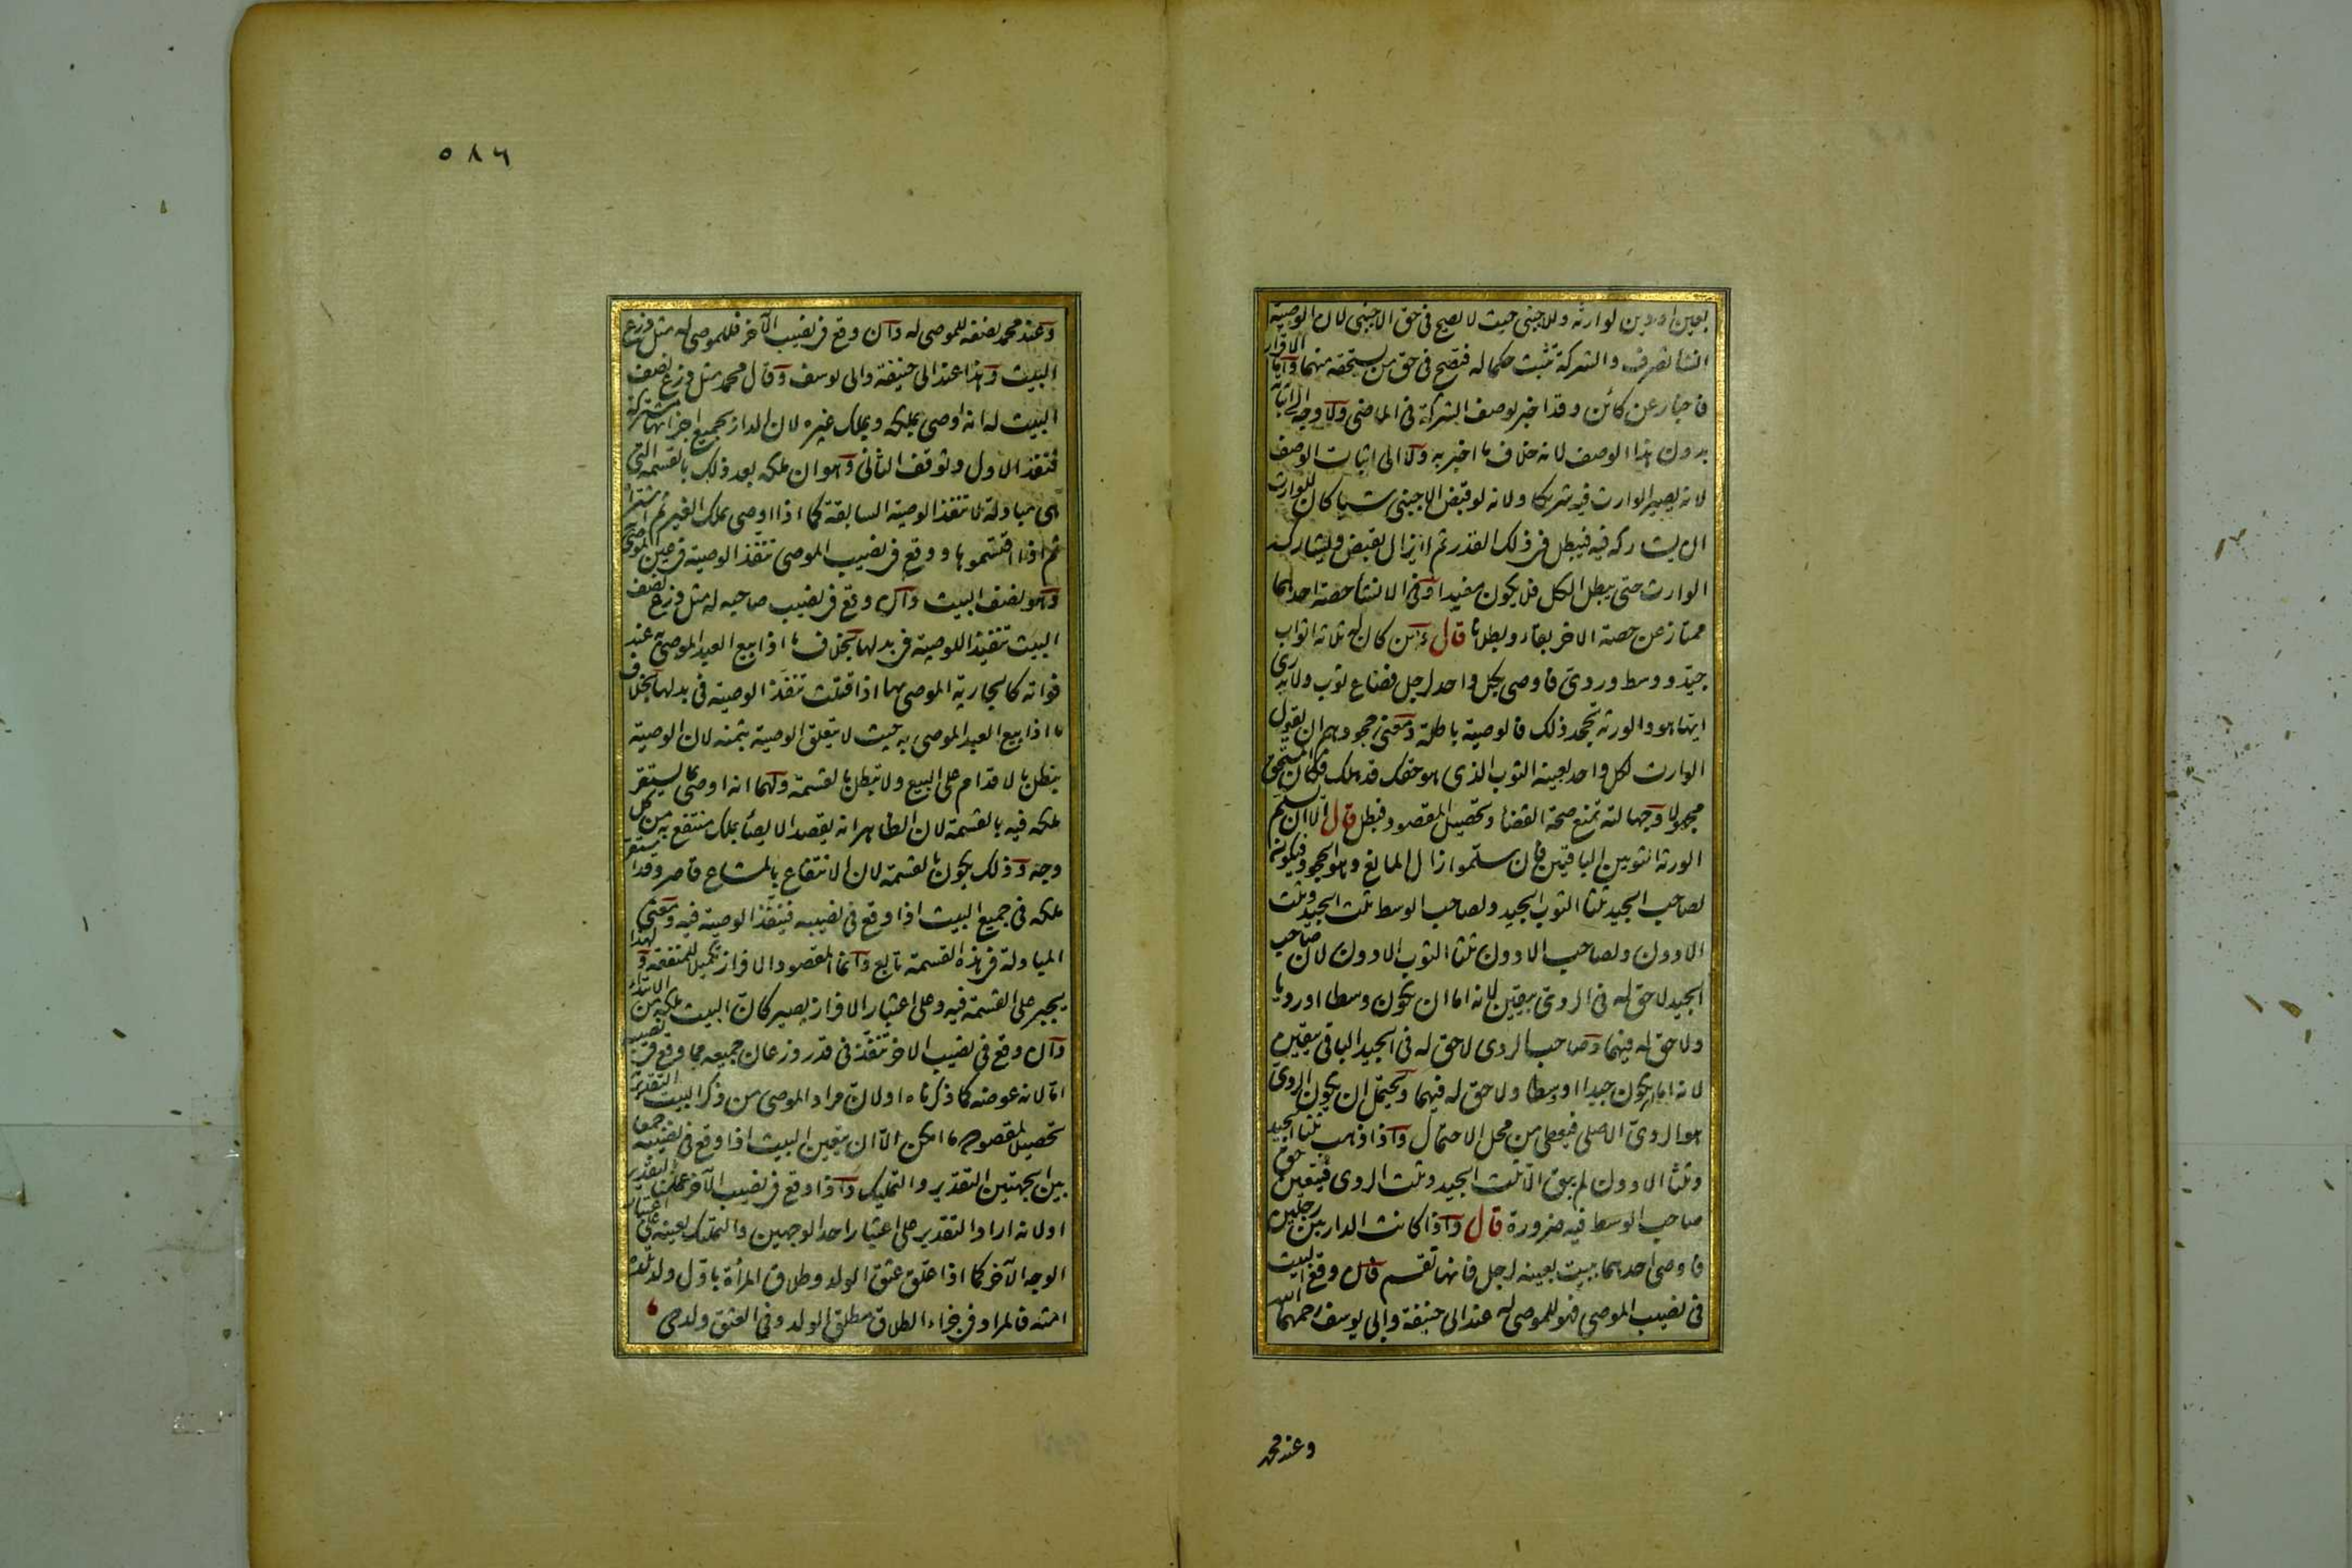 بعين او دين لوارثه وللاجنبى حيث لا يصح فى حق الاجنبى لان الوصية
انشا تصرف والشركة تثبت حكما له فتصح فى حق من يستحقه منهما واما الاقرار
فاخبار عن كائن وقد اخبر بوصف الشركة فى الماضى ولا وجه الى اثباته
بدون هذا الوصف لانه خلاف ما اخبر به ولا الى اثبات الوصف
لانه يصير الوارث فيه شريكا ولانه لو قبض الاجنبى شيا كان للوارث
ان يشاركه فيه فيبطل فى ذلك القدر ثم لا يزال يقبض ويشاركه
الوارث حتى يبطل الكل فلا يكون مفيدا وفى الانشا حصة احدهما
ممتاز عن حصة الاخر بقاء وبطلانا قال ومن كان له ثلاثه اثواب
جيد ووسط وردئ فاوصى بكل واحد لرجل فضاع ثوب ولا يدرى
ايها هو والورثه تجحد ذلك فالوصية باطلة ومعنى جحودهم ان يقول
الوارث لكل واحد بعينه الثوب الذى هو حقك قد هلك فكان المستحق
مجهولا وجهالته تمنع صحة القضا وتحصيل المقصود فبطل قال الا ان يسلم
الورثه الثوبين الباقيين فان سلموا زال المانع وهو الجحود فيكون
لصاحب الجيد ثلثا الثوب الجيد ولصاحب الوسط ثلث الجيد وثلث
الادون ولصاحب الادون ثلثا الثوب الادون لان صاحب
الجيد لا حق له فى الردئ بيقين لانه اما ان يكون وسطا او رديا
ولا حق له فيهما وصاحب الردى لا حق له فى الجيد الباقى بيقين
لانه اما ان يكون جيدا او وسطا ولا حق له فيهما ويحتمل ان يكون الردئ
هو الردئ الاصلى فيعطى من محل الاحتمال واذا ذهب ثلثا الجيد
وثلثا الادون لم يبق الا ثلث الجيد وثلث الردى فيتعين حق
صاحب الوسط فيه ضرورة قال واذا كانت الدار بين رجلين
فاوصى احدهما ببيت بعينه لرجل فانها تقسم فان وقع البيت
فى نصيب الموصى فهو للموصى له عند ابى حنيفة وابى يوسف رحمهما الله
وعند محمد
٥٨٦
وعند محمد نصفه للموصى له وان وقع فى نصيب الآخر فللموصى له مثل ذرع
البيت وهذا عند ابى حنيفة وابى يوسف وقال محمد مثل ذرع نصف
البيت له انه اوصى بملكه وبملك غيره لان الدار بجميع اجزائها مشتركة
فنفذ الاول وتوقف الثانى وهو ان ملكه بعد ذلك بالقسمه التى
هى مبادلة لا تنفذ الوصية السابقة كما اذا اوصى بملك الغير ثم اشتراه
ثم اذا اقتسموها ووقع فى نصيب الموصى تنفذ الوصية فى عين الموصى به
وهو نصف البيت وان وقع فى نصيب صاحبه له مثل ذرع نصف
البيت تنفيذا للوصية فى بدلها عند
فواته كالجارية الموصى بها اذا قتلت تنفذ الوصية فى بدلها بخلاف
ما اذا بيع العبد الموصى به حيث لا يتعلق الوصية بثمنه لان الوصية
يبطل بالاقدام على البيع ولا تبطل بالقسمة ولهما انه اوصى بما يستقر
ملكه فيه بالقسمة لان الظاهر انه يقصد الايصا بملك منتفع به من كل
وجه وذلك يكون بالقسمة لان الانتفاع بالمشاع قاصر وقد استقر
ملكه فى جميع البيت اذا وقع فى نصيبه فينفذ الوصية فيه ومعنى
المبادلة فى هذه القسمة تابع وانما المقصود الافراز تكميلا للمنفعة ولهذا
يجبر على القسمة فيه وعلى اعتبار الافراز يصير كان البيت ملكه من الابتداء
وان وقع فى نصيب الاخر تنفذ فى قدر ذرعان جميعه مما وقع فى نصيبه
اما لانه عوضه كما ذكرناه او لان مراد الموصى من ذكر البيت التقدير به
تحصيلا لمقصوده ما امكن الا ان يتعين البيت اذا وقع فى نصيبه جمعا
بين الجهتين التقدير والتمليك واذا وقع فى نصيب الآخر عملنا بالتقدير
او لانه اراد التقدير على اعتبار احد الوجهين والتمليك بعينه على اعتبار
الوجه الآخر كما اذا علق عتق الولد وطلاق المرأة باول ولد تلده
امته فالمراد فى جزاء الطلاق مطلق الولد وفى العتق ولد حى